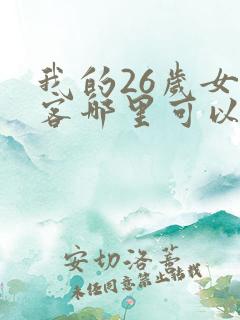 我的26歲女
客那里可以
安切洛蒂
未经同意禁止转载